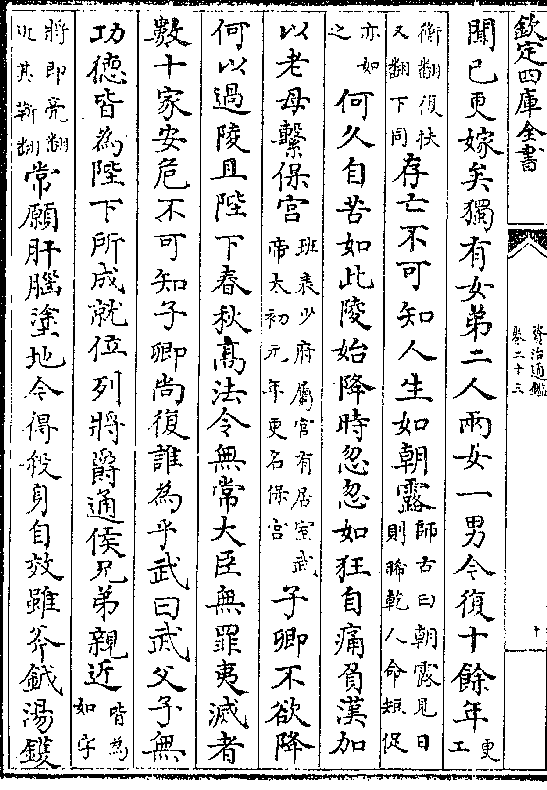 欽定四庫全書
資治通鑑
卷二十三
十
聞已更嫁矣獨有女弟二人兩女一男今復十餘年更工
衡翻復扶又翻下同存亡不可知人生如朝露師古曰朝露見日則晞乾人命短促
亦如之何久自苦如此陵始降時忽忽如狂自痛負漢加
以老母繫保宮班表少府屬官有居室武帝太初元年更名保宮子卿不欲降
何以過陵且陛下春秋髙法令無常大臣無罪夷滅者
數十家安危不可知子卿尚復誰為乎武曰武父子無
功德皆為陛下所成就位列將爵通侯兄弟親近皆為如字
將即亮翻近其靳翻常願肝腦塗地今得殺身自效雖斧鉞湯鑊